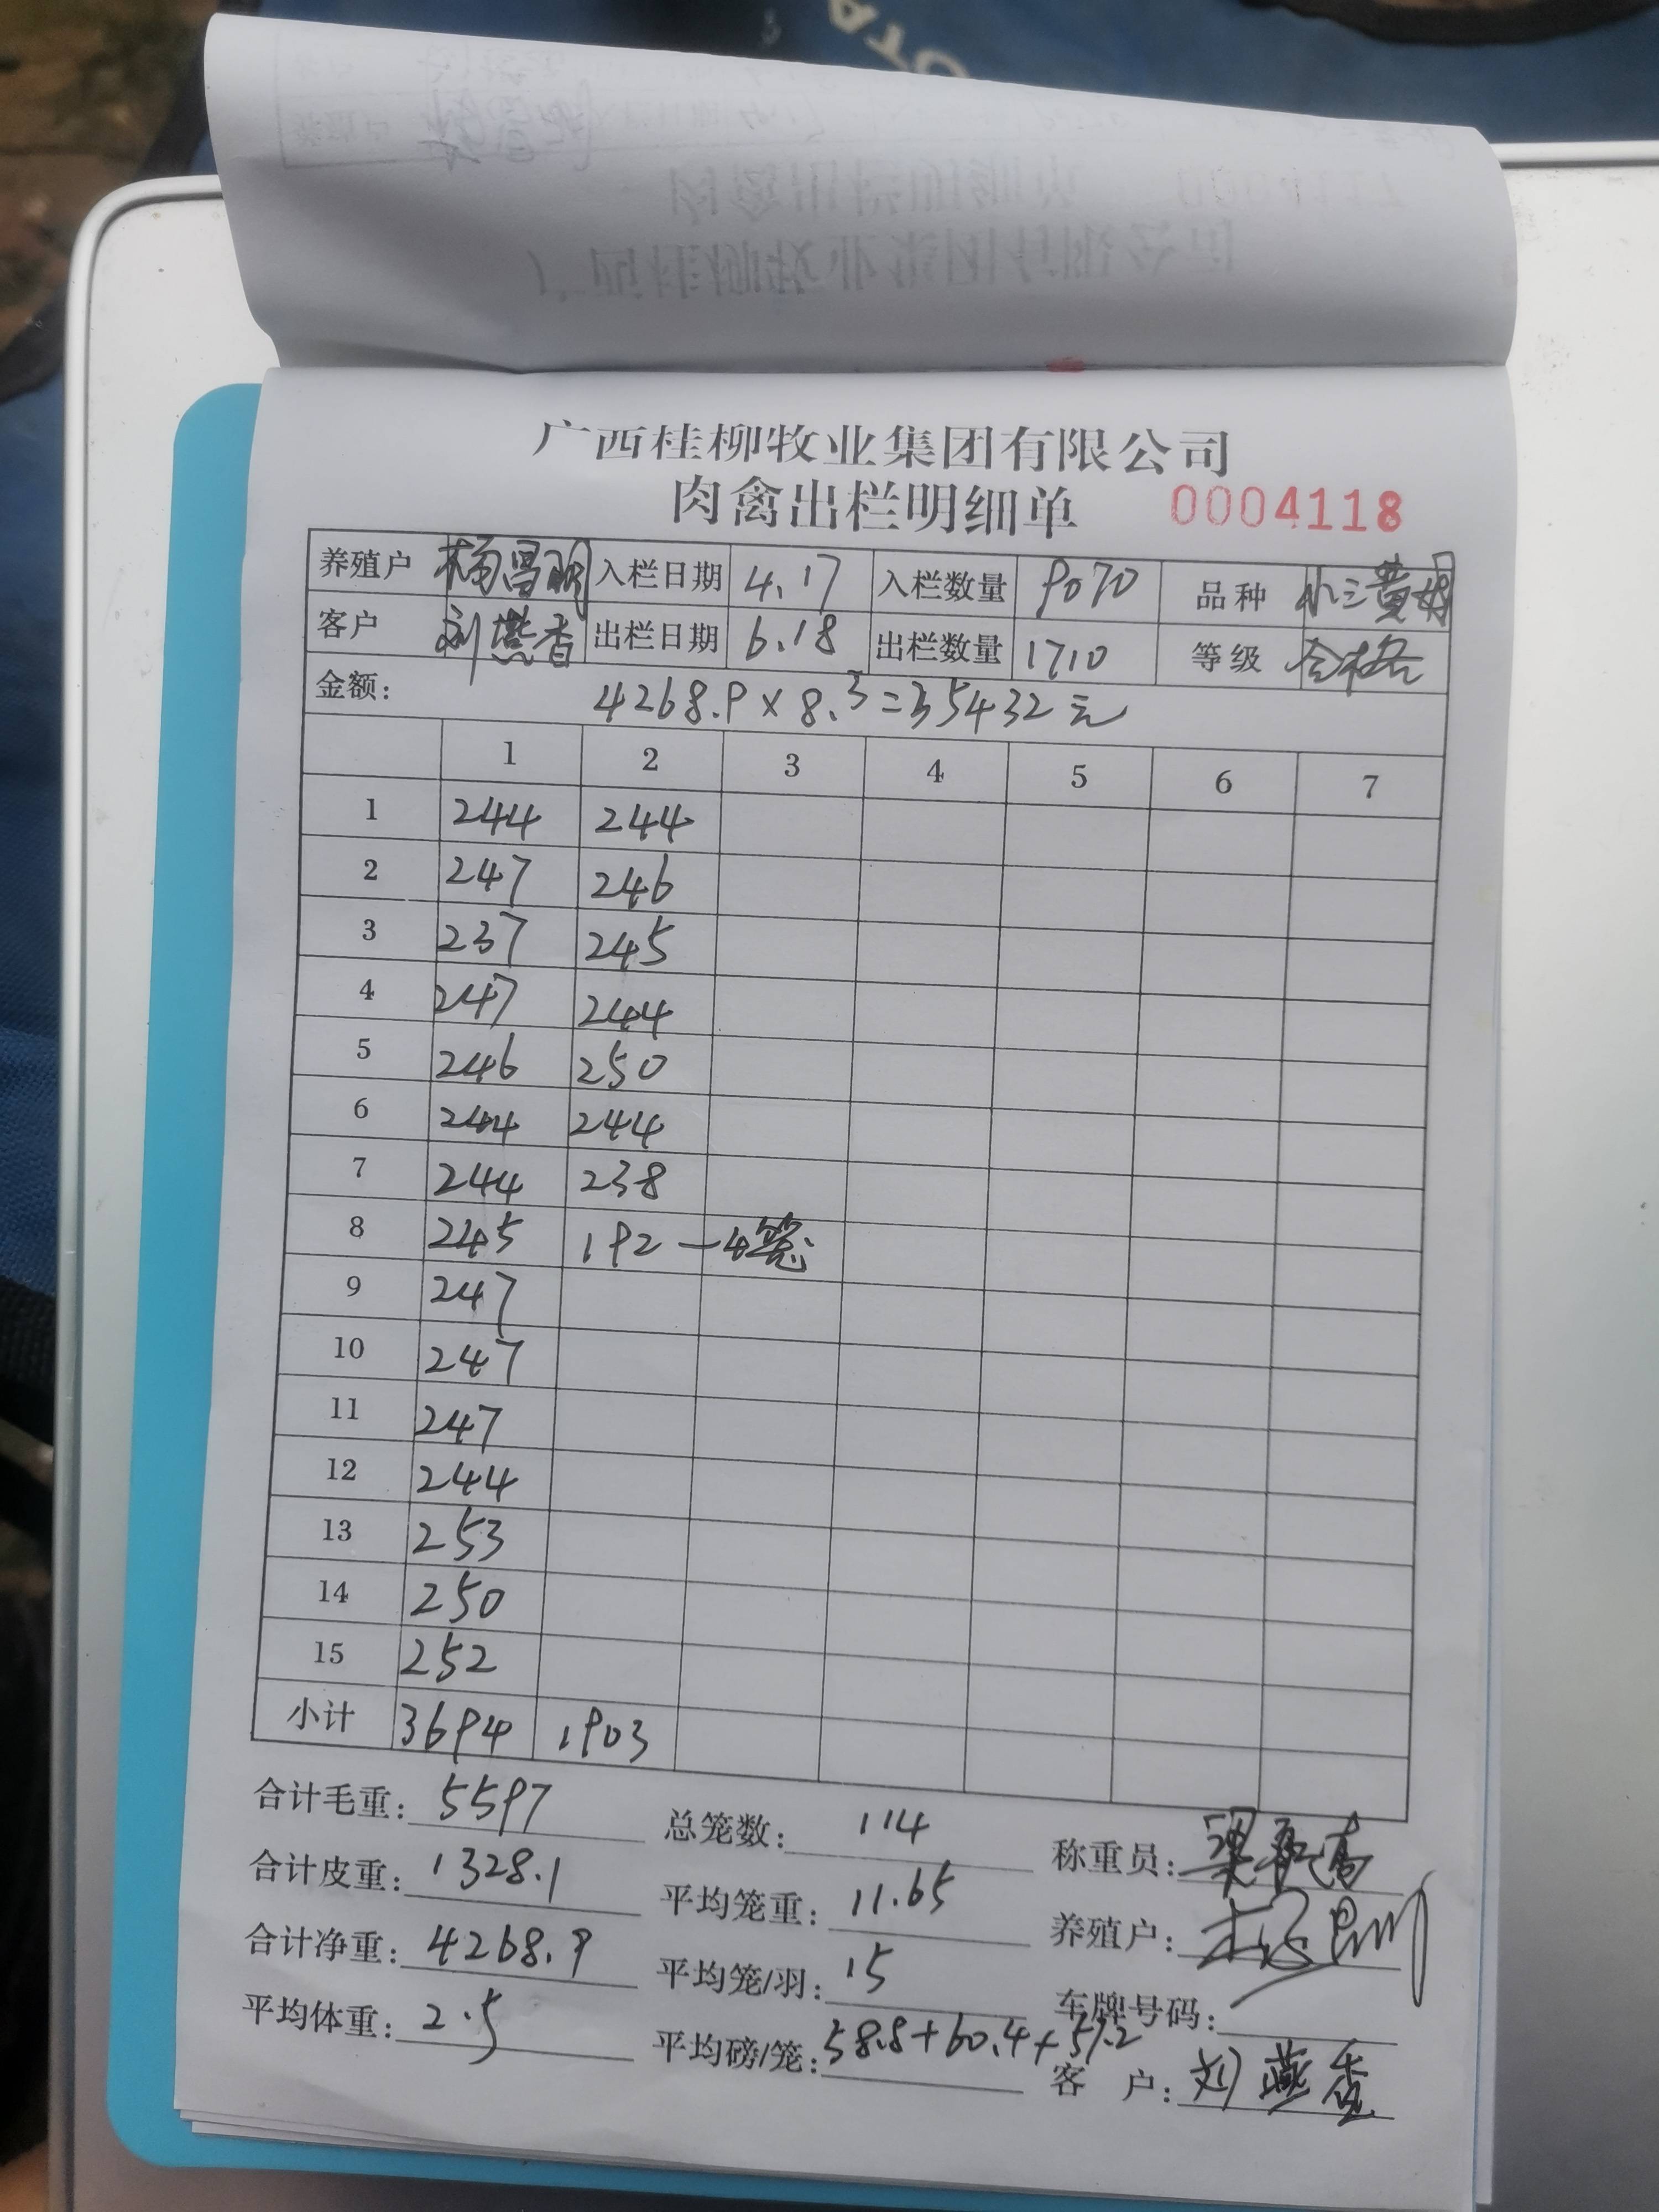 广西桂柳牧业集团有限公司
肉禽出栏明细单 0004118
养殖户 杨昌明 入栏日期 4.17 入栏数量 9070 品种 小三黄
客户 刘燕香 出栏日期 6.18 出栏数量 1710 等级 合格
金额: 4268.9×8.3=35432元
1 2 3 4 5 6 7
1 244 244
2 247 246
3 237 245
4 247 244
5 246 250
6 244 244
7 244 238
8 245 192 —4笼
9 247
10 247
11 247
12 244
13 253
14 250
15 252
小计 3694 1903
合计毛重: 5597 总笼数: 114 称重员:
合计皮重: 1328.1 平均笼重: 11.65 养殖户:
合计净重: 4268.9 平均笼/羽: 15 车牌号码:
平均体重: 2.5 平均磅/笼: 58.8+60.4+57.2 客 户: 刘燕香